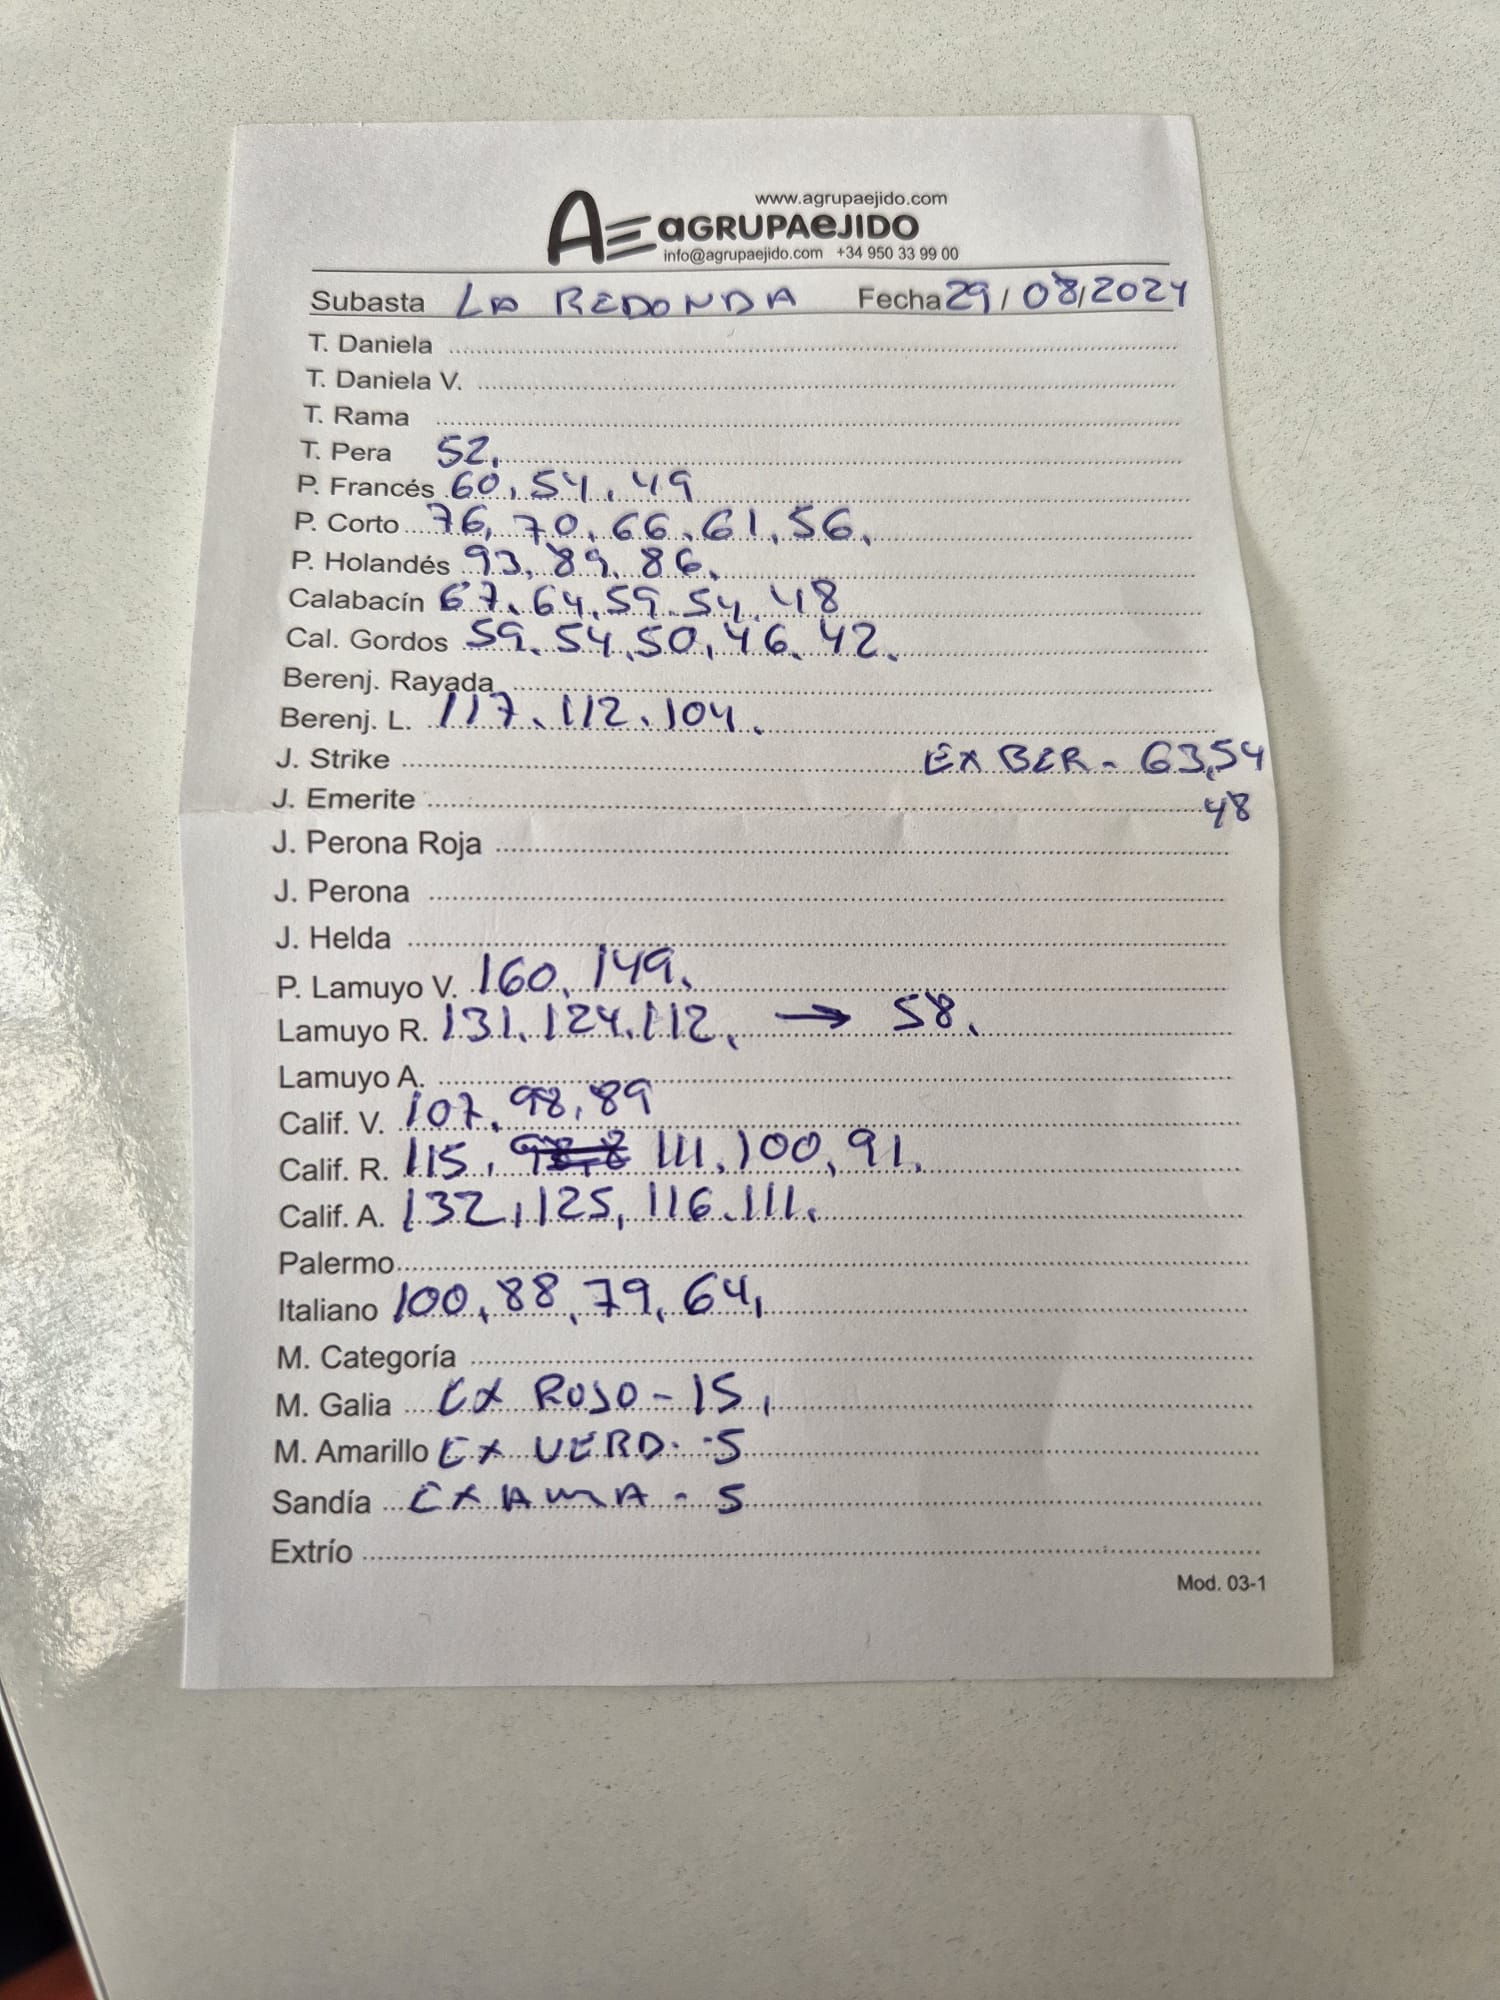 www.agrupaejido.com
AE aGRUPAeJIDO
info@agrupaejido.com +34 950 33 99 00
Subasta LA REDONDA Fecha 29/08/2024
T. Daniela
T. Daniela V.
T. Rama
T. Pera 52.
P. Francés 60, 54, 49
P. Corto 76, 70, 66, 61, 56,
P. Holandés 93, 89, 86,
Calabacín 67, 64, 59, 54, 48
Cal. Gordos 59, 54, 50, 46, 42,
Berenj. Rayada
Berenj. L. 117, 112, 104,
J. Strike EX BER - 63,54
J. Emerite 48
J. Perona Roja
J. Perona
J. Helda
P. Lamuyo V. 160, 149,
Lamuyo R. 131, 124, 112, → 58,
Lamuyo A.
Calif. V. 107, 98, 89
Calif. R. 115, 111, 100, 91,
Calif. A. 132, 125, 116, 111,
Palermo
Italiano 100, 88, 79, 64,
M. Categoría
M. Galia EX ROJO - 15,
M. Amarillo EX VERD. - 5
Sandía EX AMA - 5
Extrío
Mod. 03-1